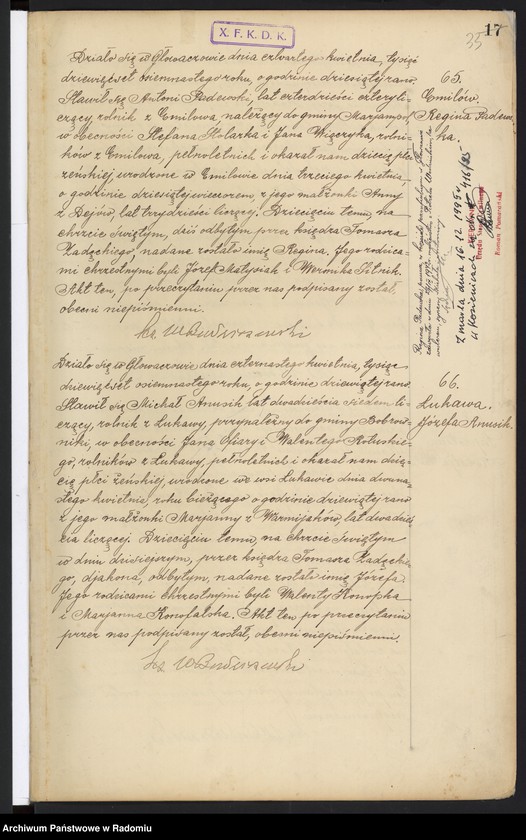 X. F. K. D. K.
17
35
Działo się w Głowaczowie dnia czwartego kwietnia, tysiąc
dziewięćset osiemnastego roku, o godzinie dziesiątej rano.
Stawił się Antoni Stadewski, lat czterdzieści cztery li-
czący, rolnik z Emilowa, należący do gminy Marjampol
w obecności Stefana Stolarka i Jana Więczyka, rolni-
ków z Emilowa, pełnoletnich i okazał nam dziecię płci
żeńskiej, urodzone w Emilowie dnia trzeciego kwietnia,
o godzinie dziesiątej wieczorem z jego małżonki Anny
z Dejów, lat trzydzieści liczącej. Dziecięciu temu, na
chrzcie świętym, dziś odbytym przez księdza Tomasza
Zadęckiego, nadane zostało imię Regina, Jego rodzica-
mi chrzestnymi byli Józef Matysiak i Weronika Sitnik.
Akt ten, po przeczytaniu przez nas podpisany został,
obecni niepiśmienni.
65.
Emilów.
Regina
Zmarła dnia 16.12.1995 r.
w Kozienicach
416/95
Roman Pomarański
Działo się w Głowaczowie dnia czternastego kwietnia, tysiąc
dziewięćset osiemnastego roku, o godzinie dziewiątej rano.
Stawił się Michał Anusik lat dwadzieścia siedem li-
czący, rolnik z Łukawy, przynależny do gminy Bobrow-
niki, w obecności Jana i Walentego
go, rolników z Łukawy, pełnoletnich i okazał nam dzie-
cię płci żeńskiej, urodzone we wsi Łukawie dnia dwuna-
stego kwietnia, roku bieżącego o godzinie dziewiątej rano
z jego małżonki Marjanny z Warmijaków, lat dwadzieś-
cia liczącej. Dziecięciu temu, na chrzcie świętym
w dniu dzisiejszym, przez księdza Tomasza Zadęckie-
go, djakona, odbytym, nadane zostało imię Józefa
Jego rodzicami chrzestnymi byli Walenty Konopka
i Marjanna Konofalska. Akt ten po przeczytaniu
przez nas podpisany został, obecni niepiśmienni.
66.
Łukawa.
Józefa Anusik.
Archiwum Państwowe w Radomiu